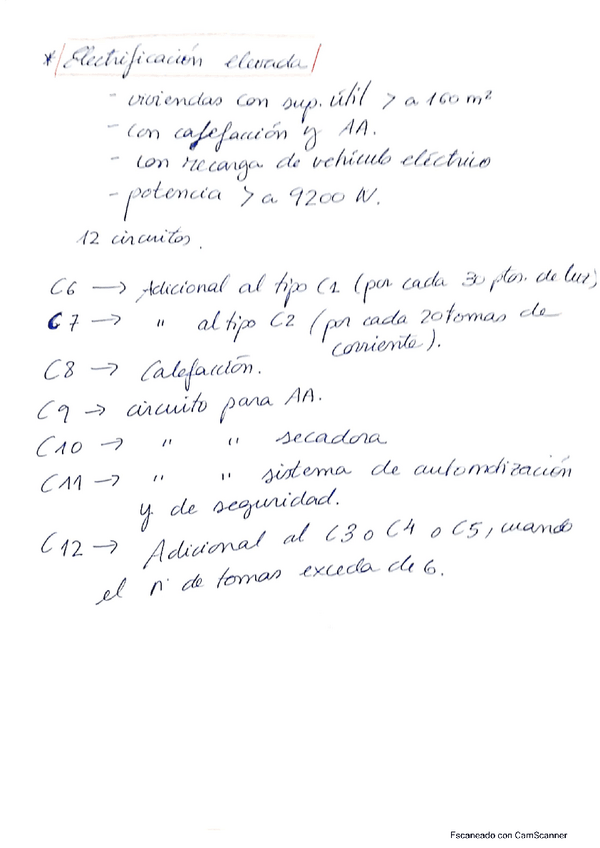 * Electrificación elevada
- viviendas con sup. útil > a 160 m²
- con calefacción y AA.
- con recarga de vehículo eléctrico
- potencia > a 9200 W.
12 circuitos.
C6 → Adicional al tipo C1 (por cada 30 ptos. de luz)
C7 → " al tipo C2 (por cada 20 tomas de
corriente).
C8 → Calefacción.
C9 → circuito para AA.
C10 → " " secadora
C11 → " " sistema de automatización
y de seguridad.
C12 → Adicional al C3 o C4 o C5, cuando
el nº de tomas exceda de 6.
Escaneado con CamScanner